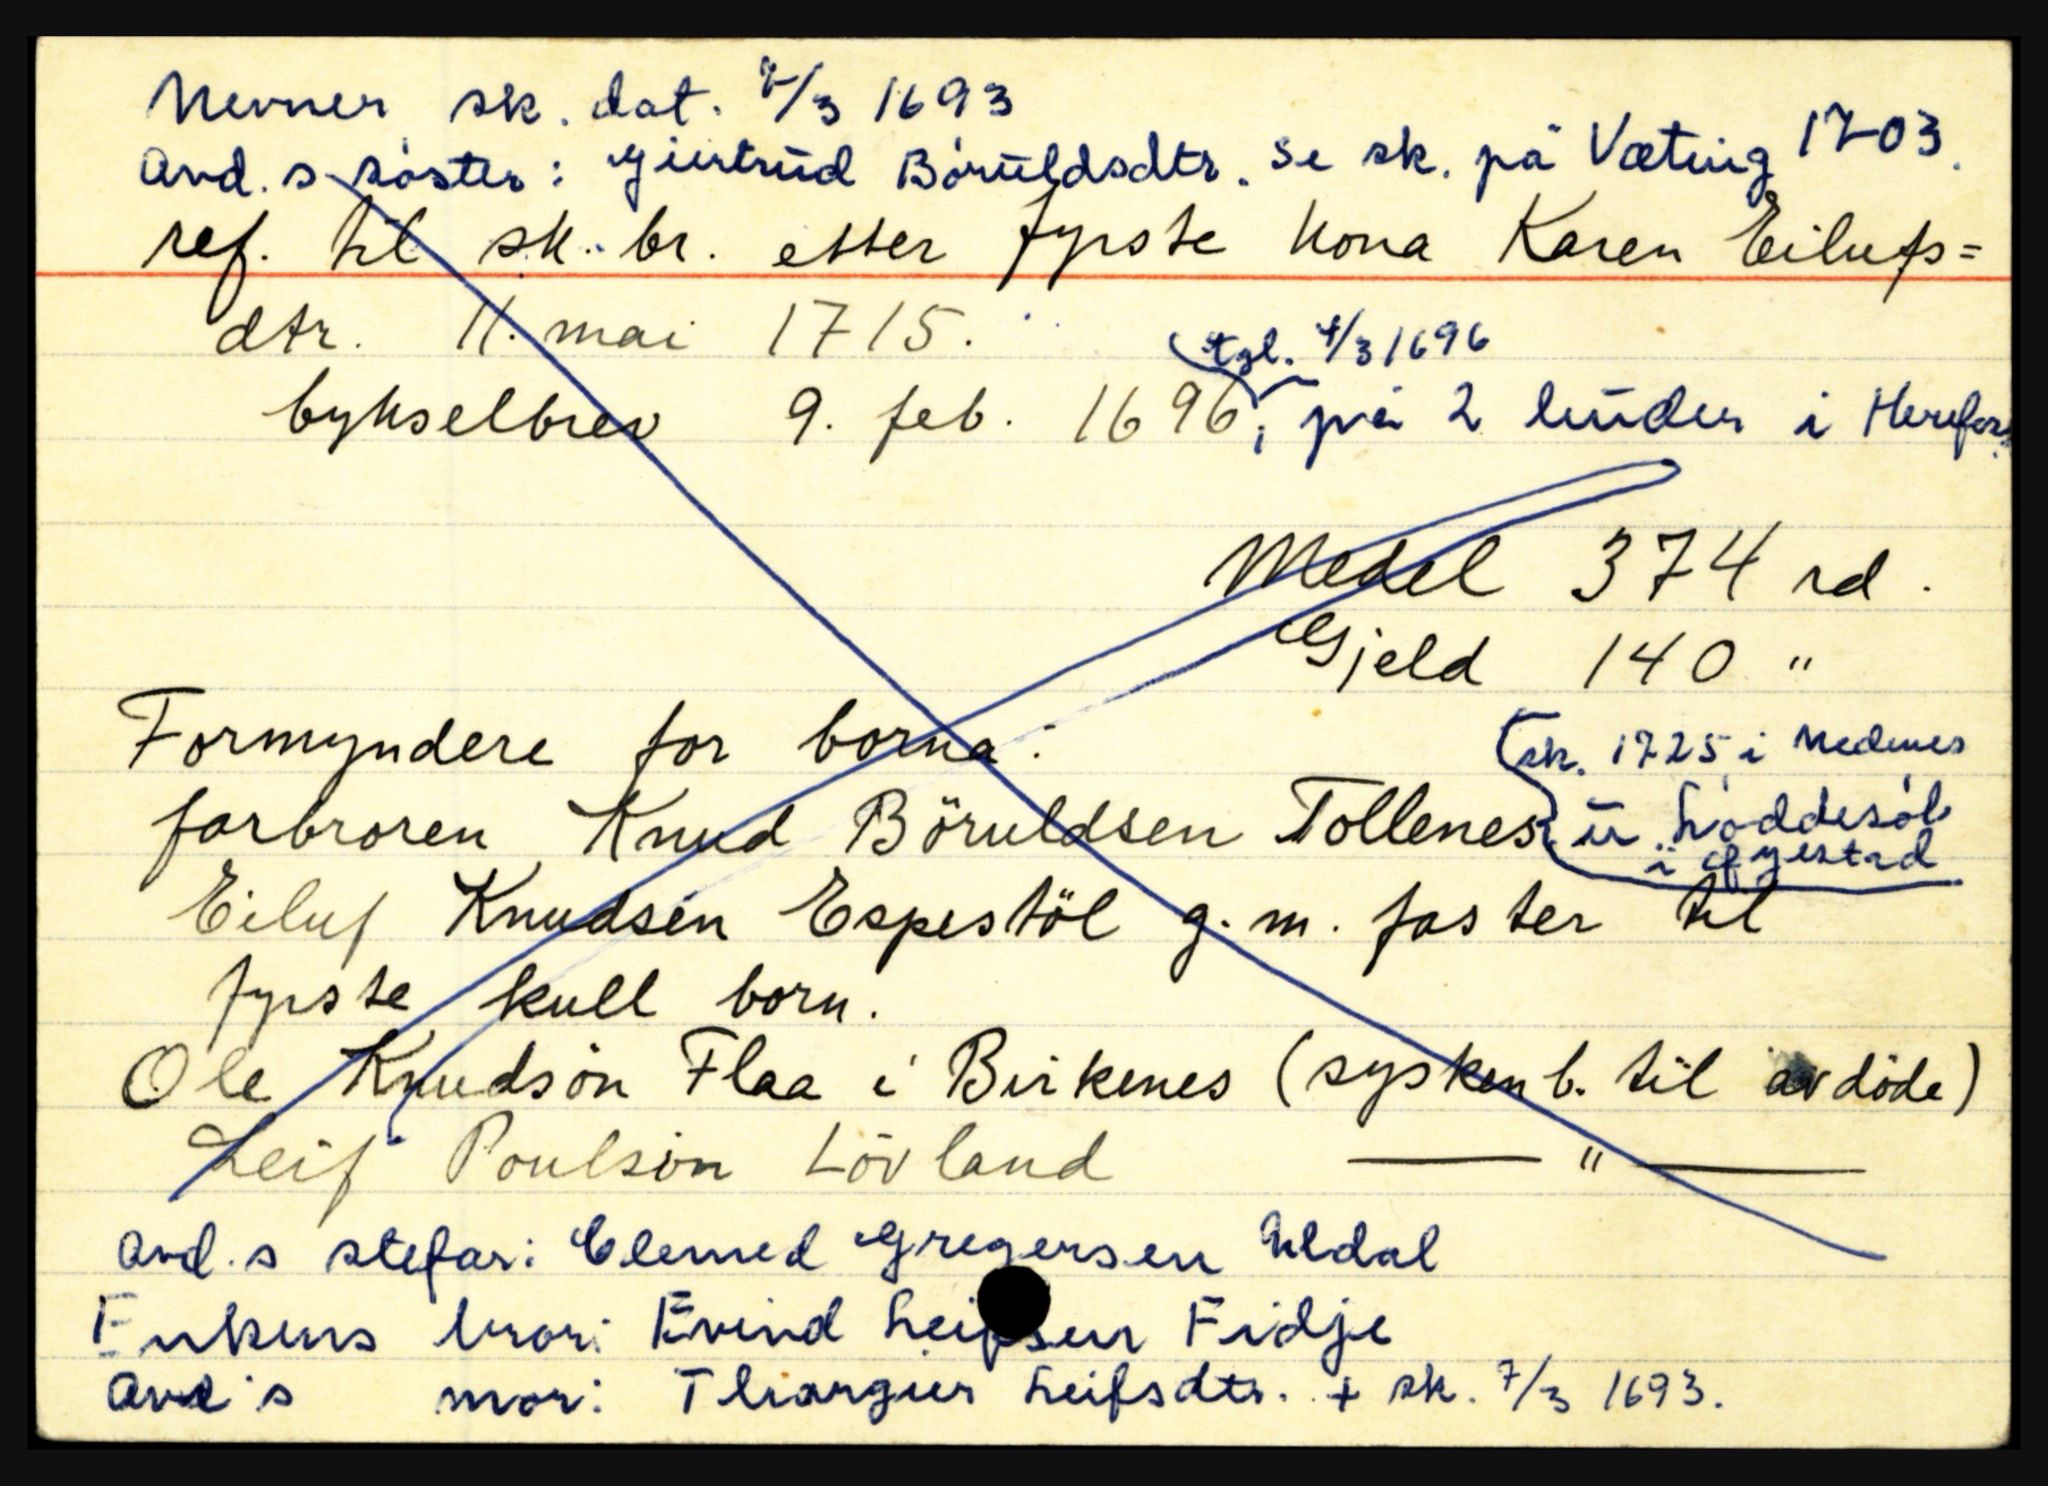 Nevner sk. dat. 7/3 1693
Avd.s søster: Giertrud Børuldsdtr. Se sk. på Væting 1703.
ref. til sk. br. etter fyrste kona Karen Eilufs=
dtr. 11. mai 1715.
tgl. 4/3 1696
bykselbrev 9. feb. 1696; på 2 huder i Herefoss.
Medel 374 rd.
Gjeld 140 "
Formyndere for borna:
sk. 1725 i Nedenes
farbroren Knud Böruldsen Tollenes
i Øyestad
Eiluf Knudsen Espestöl g. m. faster til
fyrste kull born.
Ole Knudsön Flaa i Birkenes (sysken b. til avdöde)
Leif Poulsön Lövland — " —
Avd.s stefar: Clemed Gregersen Uldal
Enkens bror: Evind Leifsen Fidje
Avd's mor: Thorgier Leifsdtr. + sk. 7/3 1693.